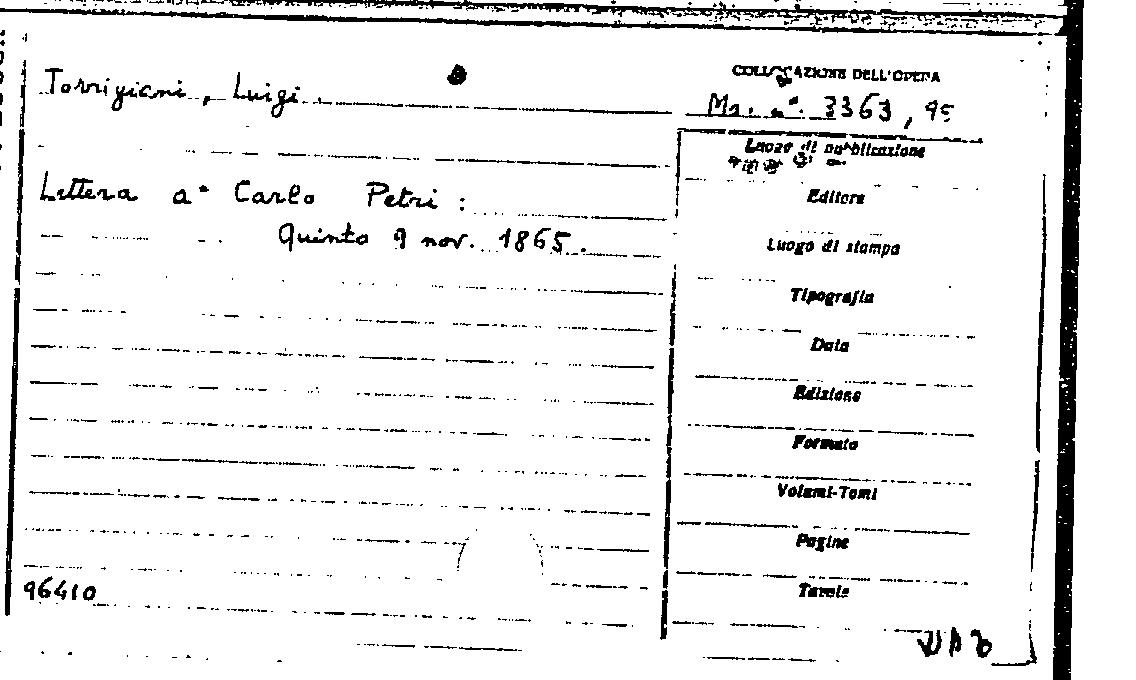 Torrigiani, Luigi.
COLLOCAZIONE DELL'OPERA
Ms. n°. 3363, 95
Luogo di pubblicazione
Lettera a Carlo Petri:
Quinto 9 nov. 1865.
Editore
Luogo di stampa
Tipografia
Data
Edizione
Formato
Volumi-Tomi
Pagine
Tavole
96410